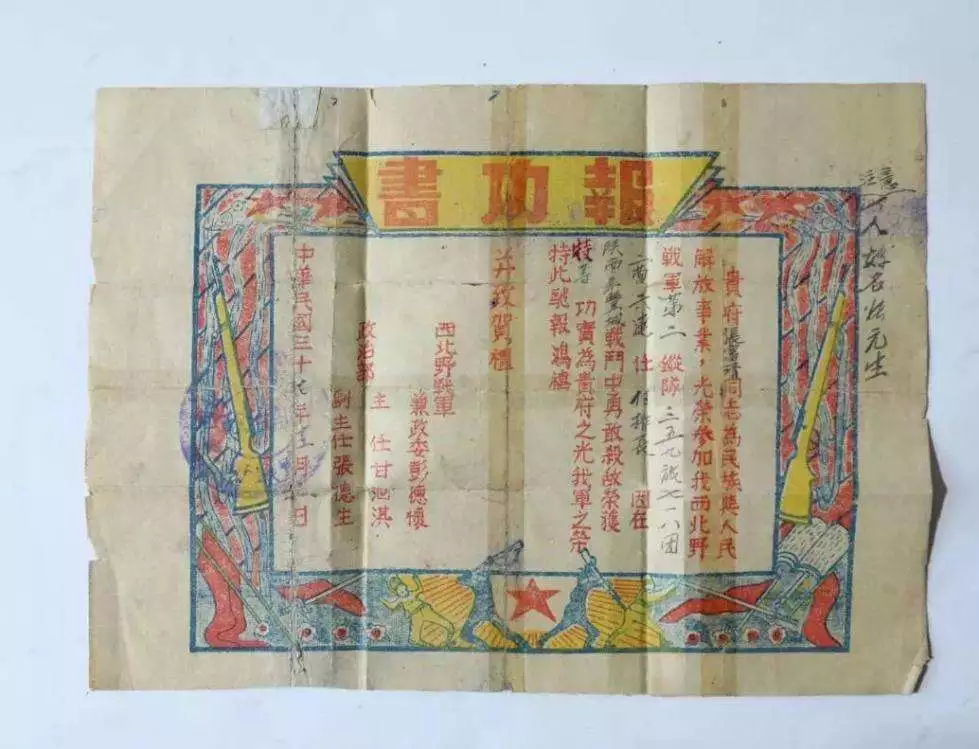 報功書
注意
貴府張富清同志為民族與人民
解放事業，光榮參加我西北野
戰軍第二縱隊三五九旅七一八團
二營六連 任 付排長 因在
陝西永豐城戰鬥中勇敢殺敵榮獲
特等 功實為貴府之光我軍之榮
特此馳報鴻禧
并致賀禮
西北野戰軍
兼政委彭德懷
政治部
主任甘泗淇
副主任張德生
中華民國三十七年十二月 日